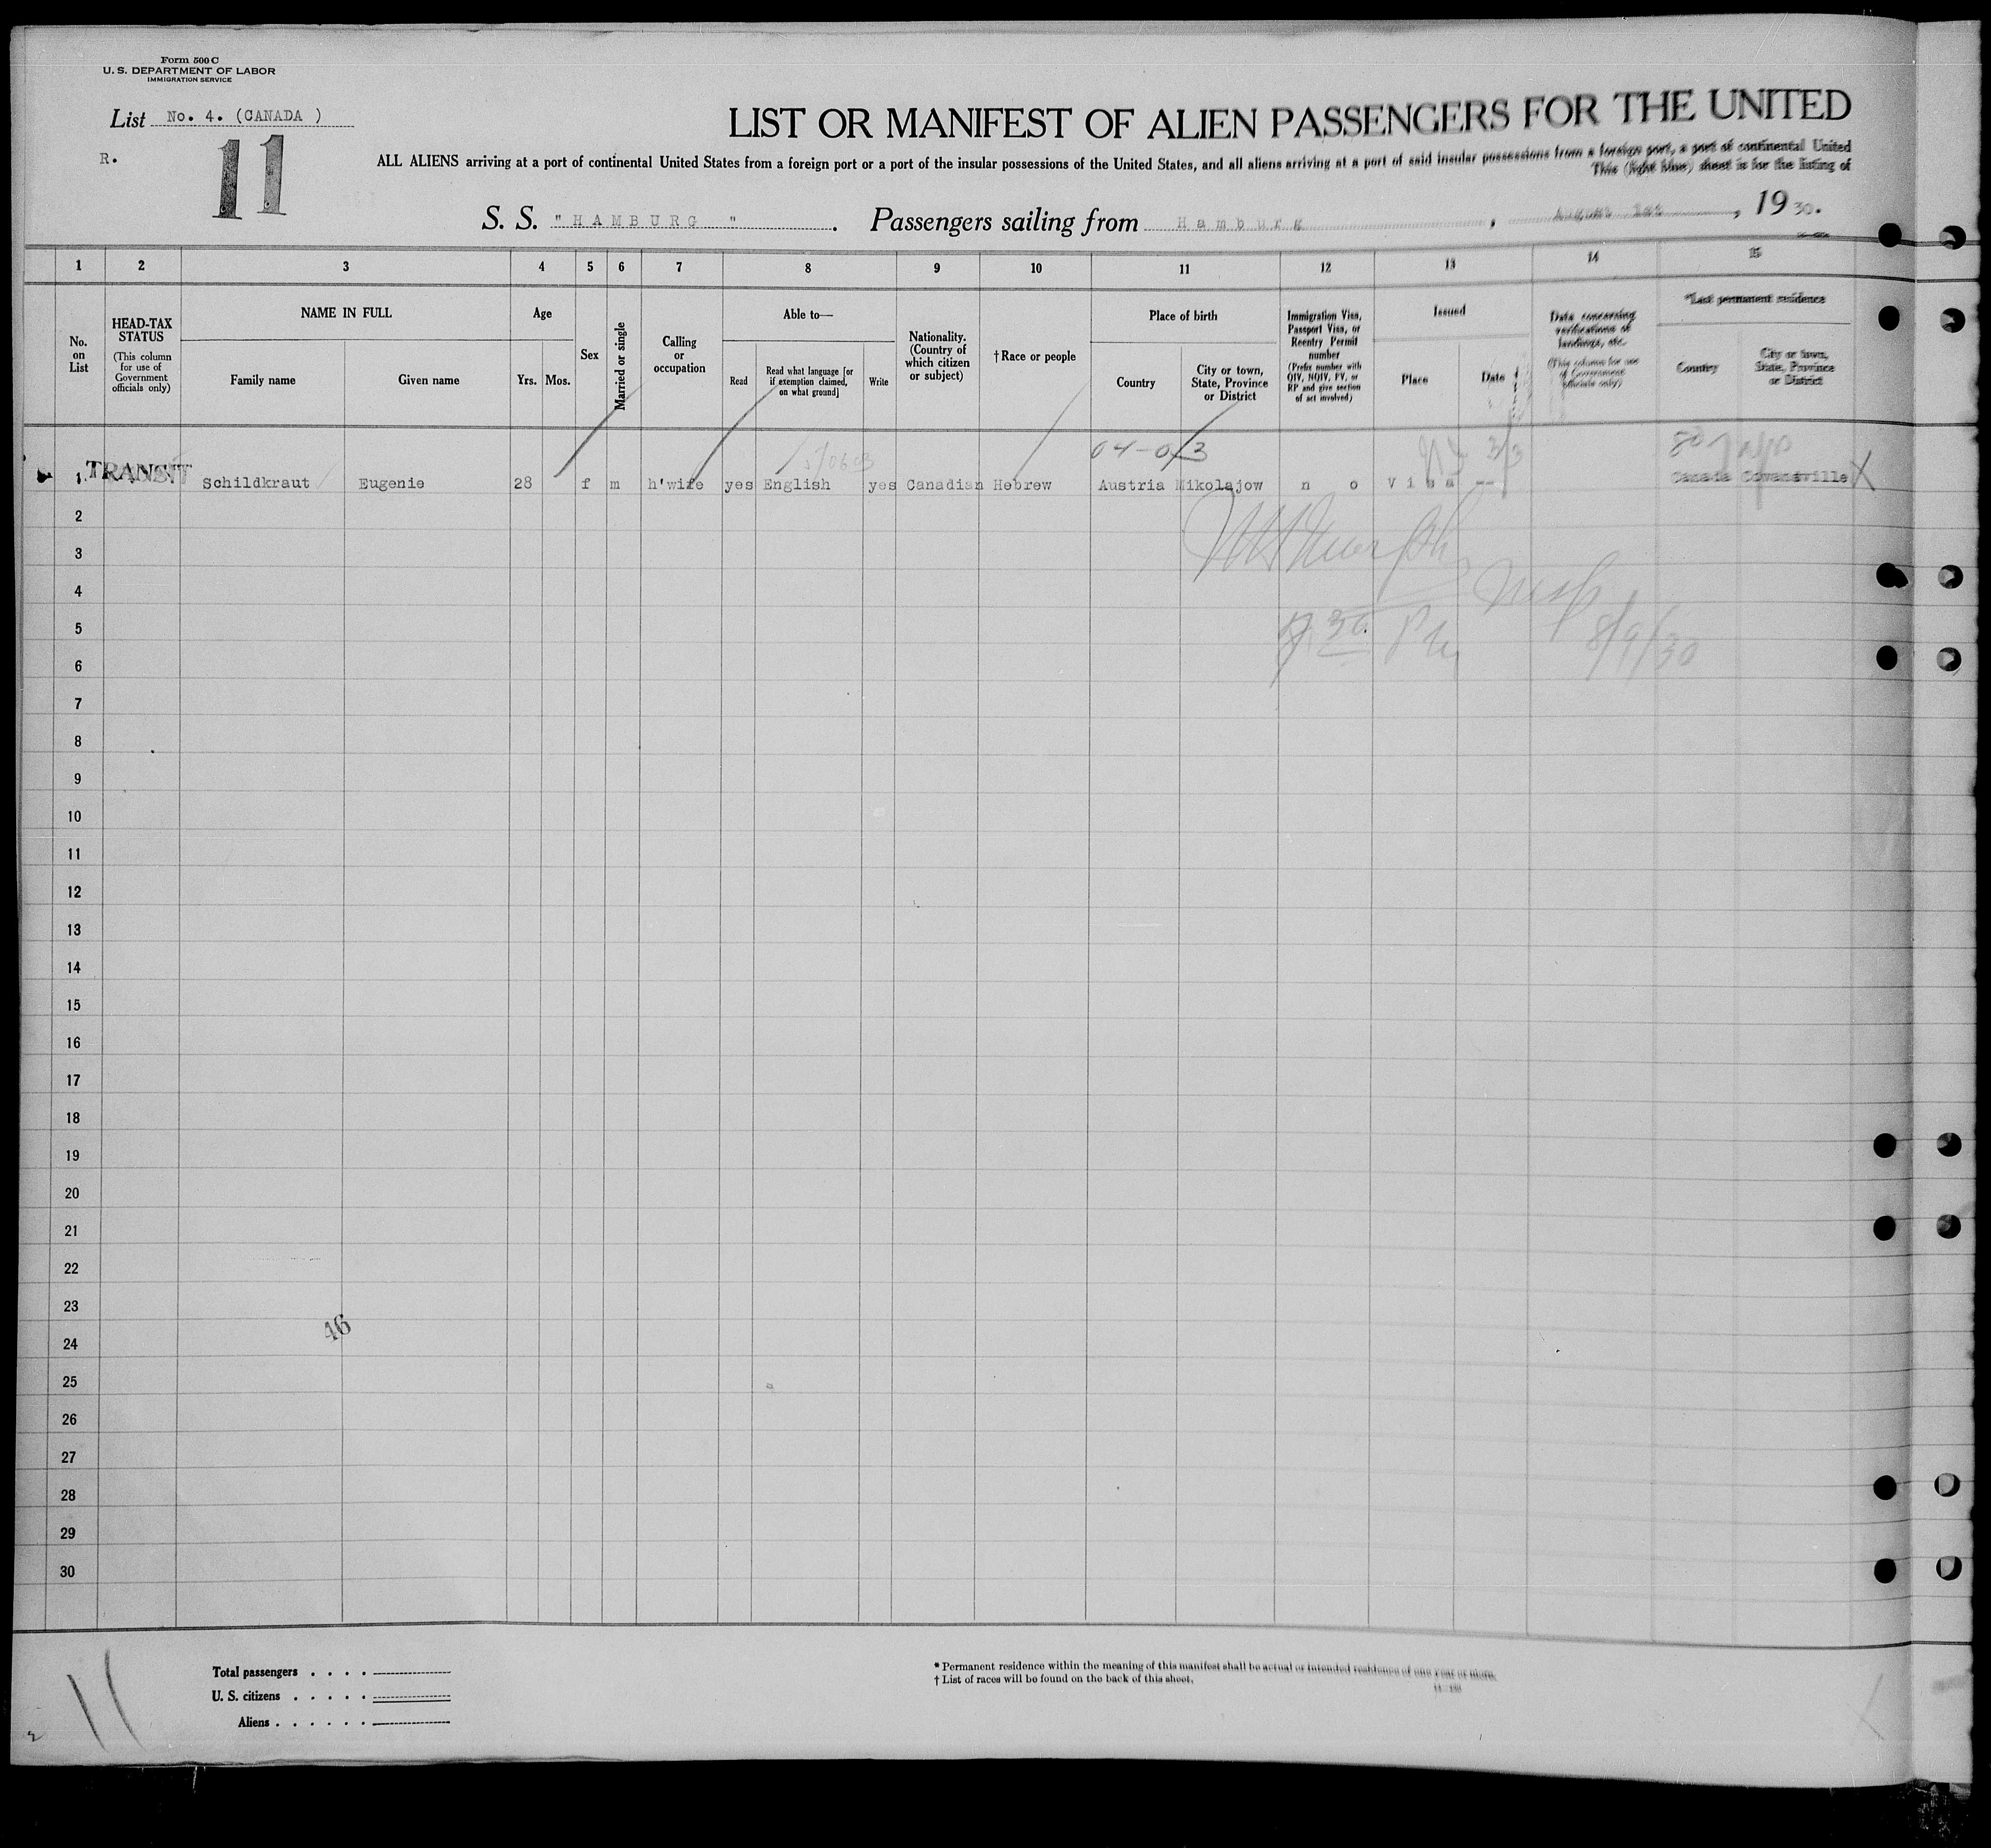 Form 500 C
U. S. DEPARTMENT OF LABOR
IMMIGRATION SERVICE
List No. 4. (CANADA )
R.
11
LIST OR MANIFEST OF ALIEN PASSENGERS FOR THE UNITED
ALL ALIENS arriving at a port of continental United States from a foreign port or a port of the insular possessions of the United States, and all aliens arriving at a port of said insular possessions from a foreign port, a port of continental United
This (light blue) sheet is for the listing of
S. S. " H A M B U R G " . Passengers sailing from H a m b u r g , August 1st , 19 30.
1 2 3 4 5 6 7 8 9 10 11 12 13 14 15
No. on List
HEAD-TAX STATUS (This column for use of Government officials only)
NAME IN FULL
Family name Given name
Age
Yrs. Mos.
Sex
Married or single
Calling or occupation
Able to—
Read
Read what language [or if exemption claimed, on what ground]
Write
Nationality. (Country of which citizen or subject)
†Race or people
Place of birth
Country
City or town, State, Province or District
Immigration Visa, Passport Visa, or Reentry Permit number (Prefix number with QIV, NQIV, PV, or RP and give section of act involved)
Issued
Place Date
Data concerning verifications of landings, etc. (This column for use of Government officials only)
*Last permanent residence
Country
City or town, State, Province or District
04-0/3
1 TRANSIT Schildkraut Eugenie 28 f m h'wife yes English yes Canadian Hebrew Austria Mikolajow n o V i s a -- Canada Cowansville X
2
3
4
5
8/9/30
6
7
8
9
10
11
12
13
14
15
16
17
18
19
20
21
22
23
46
24
25
26
27
28
29
30
11
Total passengers . . . .
U. S. citizens . . . . .
Aliens . . . . . .
* Permanent residence within the meaning of this manifest shall be actual or intended residence of one year or more.
† List of races will be found on the back of this sheet.